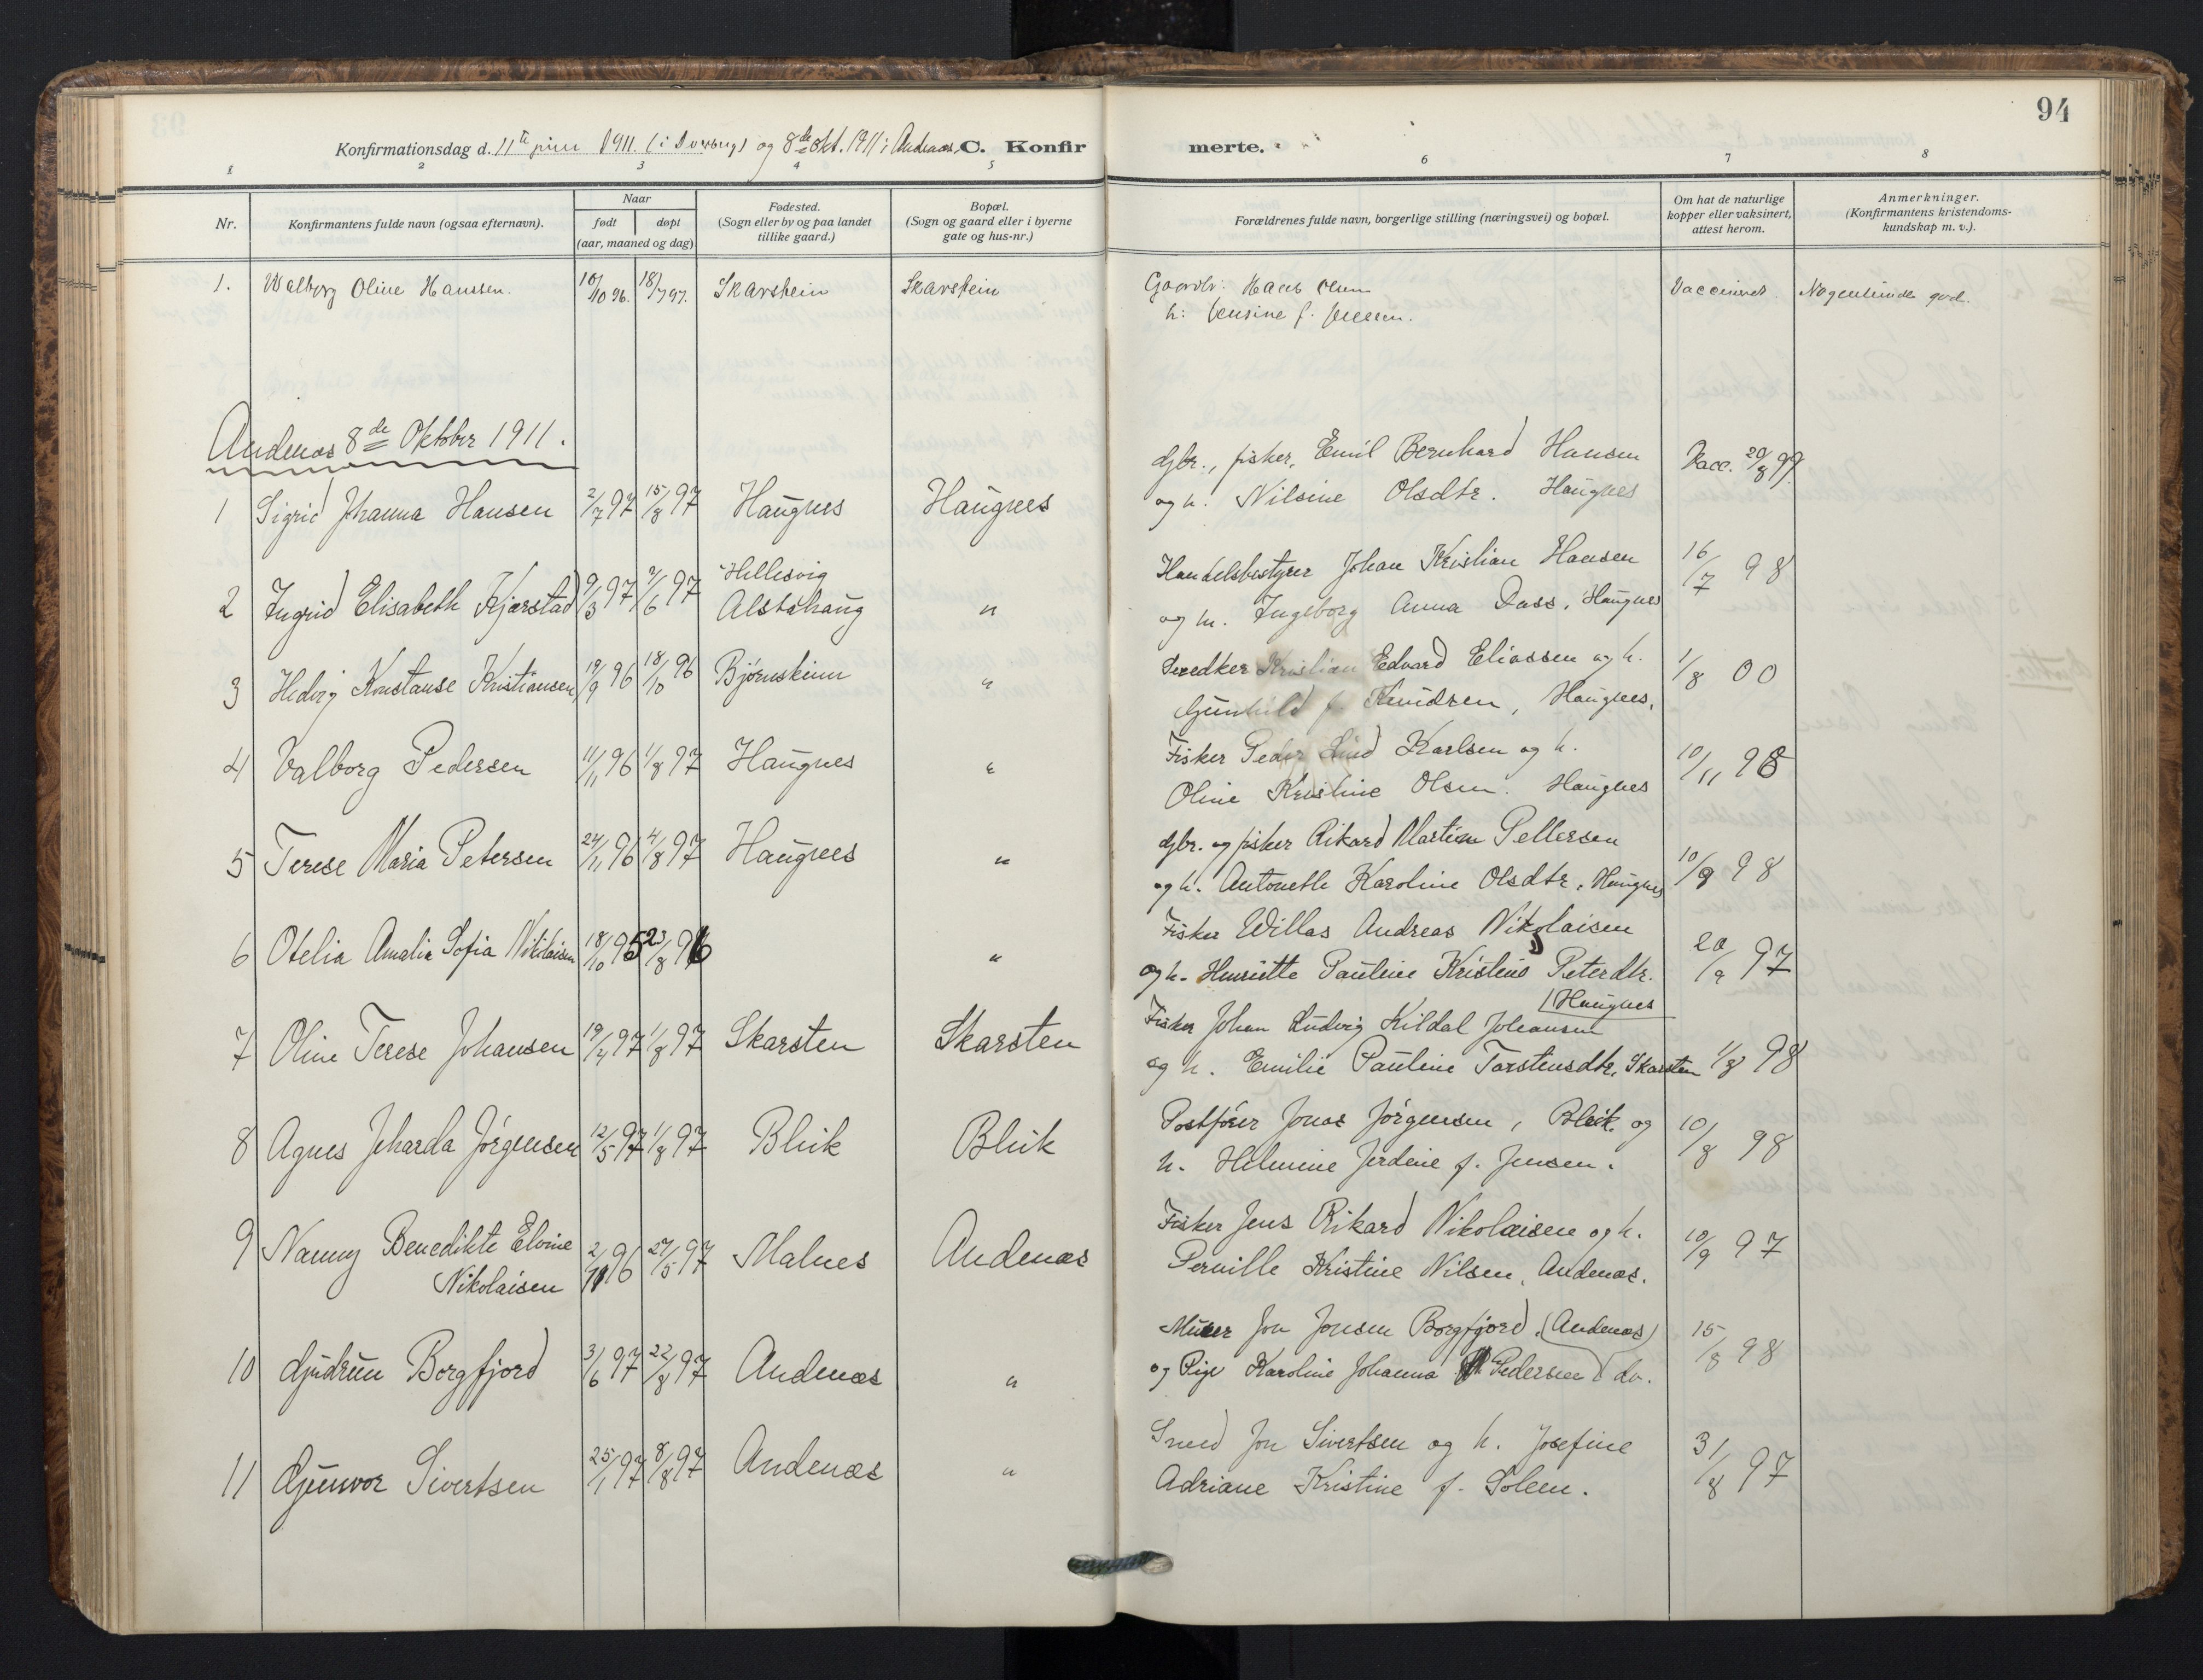 94
Konfirmationsdag d. 11te juni 1911. (i Dverberg) og 8de Okt. 1911 i Andenæs. C. Konfirmerte.
1 2 3 4 5 6 7 8
Nr. Konfirmantens fulde navn (ogsaa efternavn). Naar født døpt (aar, maaned og dag) Fødested. (Sogn eller by og paa landet tillike gaard.) Bopæl. (Sogn og gaard eller i byerne gate og hus-nr.) Forældrenes fulde navn, borgerlige stilling (næringsvei) og bopæl. Om hat de naturlige kopper eller vaksinert, attest herom. Anmerkninger. (Konfirmantens kristendoms-kundskap m. v.).
1. Walborg Oline Hanssen. 10/10 96. 18/7 97. Skarstein Skarstein Gaardbr: Hans Olsen Vaccineret. Nogenlunde god.
h: Jensine f. Jensen.
Andenæs 8de Oktober 1911.
gbr., fisker, Emil Bernhard Hansen Vacc. 20/8 99.
1 Sigrid Johanna Hansen 2/7 97 15/8 97 Haugnes Haugnes og h. Nilsine Olsdtr. Haugnes
Hellesvig Handelsbestyrer Johan Kristian Hansen 16/7 98
2 Ingrid Elisabeth Kjærstad 9/3 97 7/6 97 Alstahaug " og h. Ingeborg Anna Dass, Haugnes
3 Hedvig Konstanse Kristiansen 19/9 96 18/10 96 Bjørnskinn " Snedker Kristian Edvard Eliassen og h. 1/8 00
Gunhild f. Knudsen, Haugnes.
4 Valborg Pedersen 11/11 96 1/8 97 Haugnes " Fisker Peder Lind Karlsen og h. 10/11 98
Oline Kristine Olsen. Haugnes
gbr. og fisker Rikard Martin Pettersen
5 Terese Maria Petersen 24/11 96 4/8 97 Haugnes " og h. Antonette Karoline Olsdtr, Haugnes 10/9 98
Fisker Willas Andreas Nikolaisen
6 Otelia Amalie Sofia Nikolaisen 18/10 95 23/8 96 " og h. Henriette Pauline Kristine Peterdtr. 20/9 97
/Haugnes
Fisker Johan Ludvig Kildal Johansen
7 Oline Terese Johansen 19/4 97 1/8 97 Skarsten Skarsten og h. Emilie Pauline Torstensdtr, Skarsten 1/8 98
8 Agnes Jeharda Jörgensen 12/5 97 1/8 97 Bleik Bleik Postfører Jonas Jörgensen, Bleik og 10/8 98
h. Helmine Jerdine f. Jensen.
9 Nanny Benedikte Elvine 2/10 96 27/5 97 Malnes Andenæs Fisker Jens Rikard Nikolaisen og h. 10/9 97
Nikolaisen Pernille Kristine Nilsen, Andenæs.
Murer Jon Jonsen Borgfjord, (Andenæs) 15/8 98
10 Gudrun Borgfjord 3/6 97 22/8 97 Andenæs " og Pige Karoline Johanna Pedersen do.
Smed Jon Sivertsen og h. Josefine 31/8 97
11 Gunvor Sivertsen 25/1 97 8/8 97 Andenæs " Adriane Kristine f. Solem.